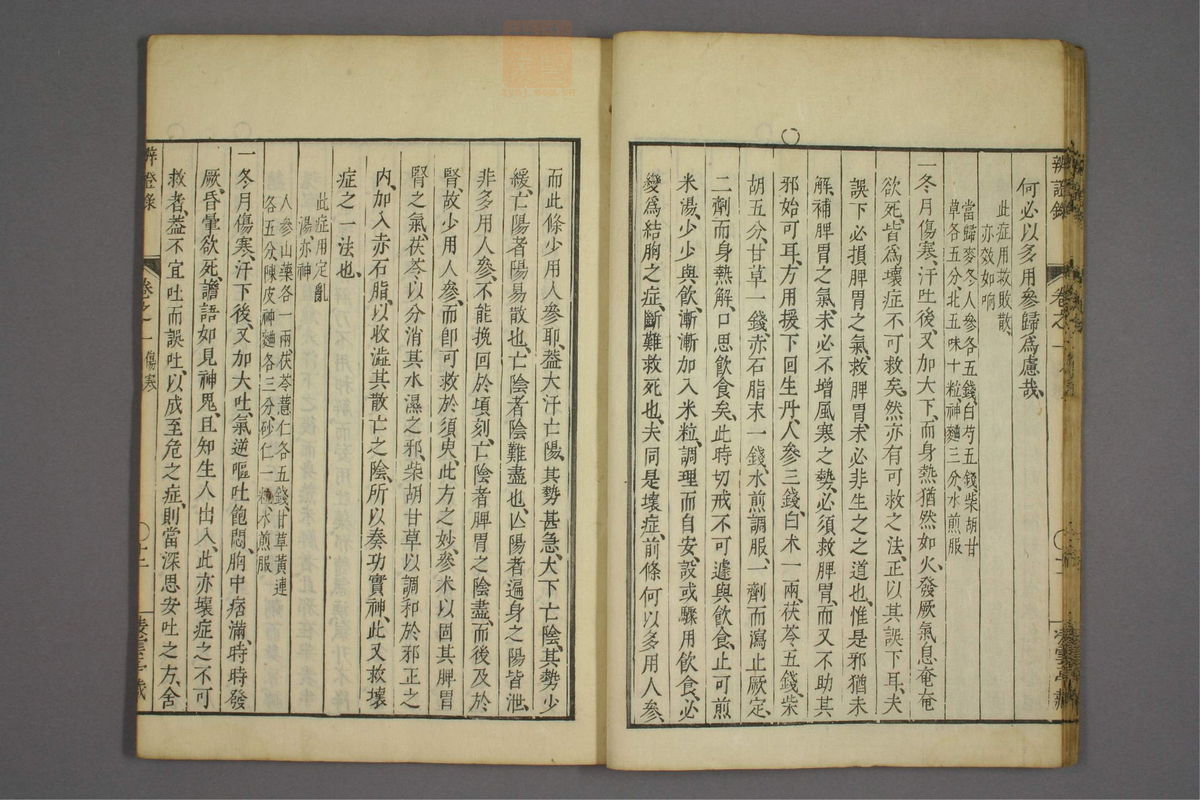 何必以多用參歸爲慮哉、
此症用救敗散、
亦效如响
當歸麥冬人參各五錢、白芍五錢、柴胡甘
草各五分、北五味十粒、神麯三分、水煎服
一冬月傷寒、汗吐後、又加大下、而身熱猶然如火、發厥氣息奄奄
欲死、皆爲壞症、不可救矣、然亦有可救之法、正以其誤下耳、夫
誤下必損脾胃之氣、救脾胃、未必非生之之道也、惟是邪猶未
解、補脾胃之氣、未必不增風寒之勢、必須救脾胃、而又不助其
邪始可耳、方用援下回生丹、人參三錢、白术一兩、茯苓五錢、柴
胡五分、甘草一錢、赤石脂末一錢、水煎調服、一劑而瀉止厥定、
二劑而身熱解、口思飲食矣、此時切戒不可遽與飲食、止可煎
米湯、少少與飲、漸漸加入米粒、調理而自安、設或驟用飲食、必
變爲結胸之症、斷難救死也、夫同是壞症、前條何以多用人參、
而此條少用人參耶、葢大汗亡陽、其勢甚急、大下亡陰、其勢少
緩、亡陽者陽易散也、亡陰者陰難盡也、亡陽者遍身之陽皆泄、
非多用人參、不能挽回於頃刻、亡陰者脾胃之陰盡、而後及於
腎、故少用人參、而卽可救於須臾、此方之妙、參术以固其脾胃
腎之氣、茯苓以分消其水濕之邪、柴胡甘草以調和於邪正之
内、加入赤石脂、以收澁其散亡之陰、所以奏功實神、此又救壞
症之一法也、
此症用定亂
湯亦神
人參山藥各一兩、茯苓薏仁各五錢、甘草黃連
各五分、陳皮神麯各三分、砂仁一粒、水煎服
一冬月傷寒、汗下後、又加大吐、氣逆嘔吐飽悶、胸中痞滿、時時發
厥、昏暈欲死、譫語如見神鬼、且知生人出入、此亦壞症之不可
救者、葢不宜吐而誤吐、以成至危之症、則當深思安吐之方、舍
卷之一
傷寒